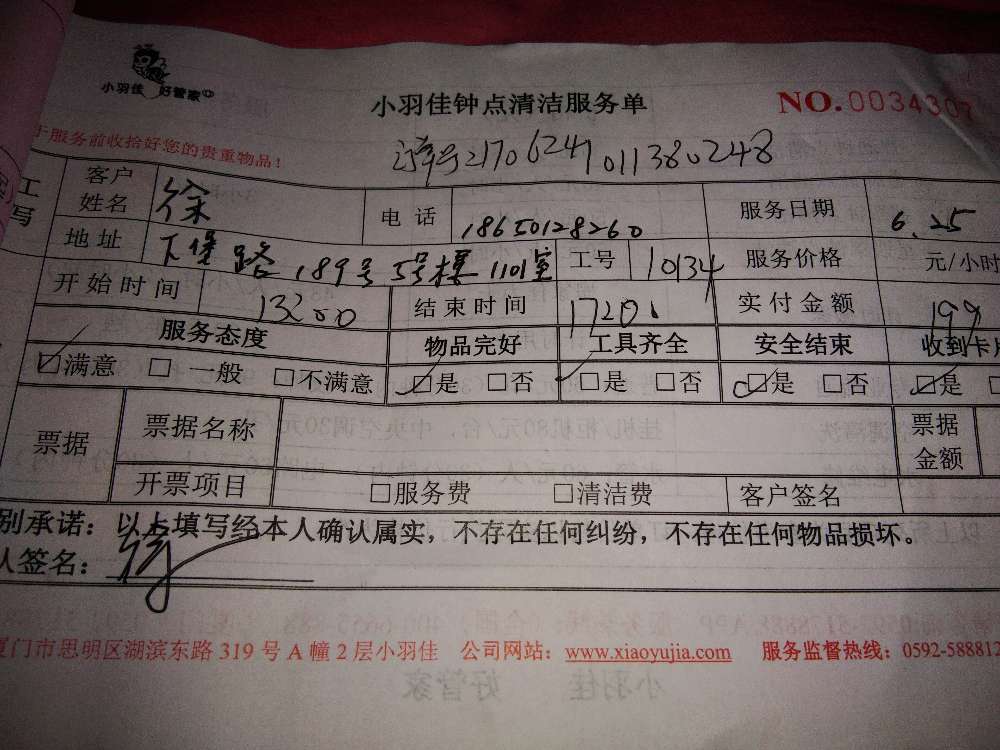 小羽佳 好管家
小羽佳钟点清洁服务单
NO.0034307
于服务前收拾好您的贵重物品！
单号2170624701138０248
工 客户姓名 徐 电话 18650128260 服务日期 6.25
写 地址 下堡路189号5号楼1101室 工号 10134 服务价格 元/小时
开始时间 13:00 结束时间 17:20 实付金额 199
服务态度 物品完好 工具齐全 安全结束 收到卡片
☑满意 □一般 □不满意 ☑是 □否 □是 □否 ☑是 □否 ☑是
票据 票据名称 票据金额
开票项目 □服务费 □清洁费 客户签名
别承诺：以上填写经本人确认属实，不存在任何纠纷，不存在任何物品损坏。
人签名：
厦门市思明区湖滨东路 319 号 A 幢 2 层小羽佳 公司网站：www.xiaoyujia.com 服务监督热线：0592-588812